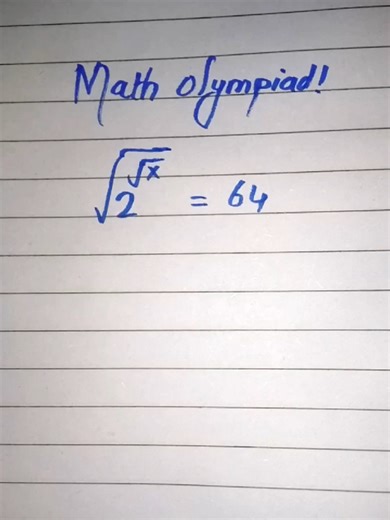 Math olympiad!
√(2^√x) = 64